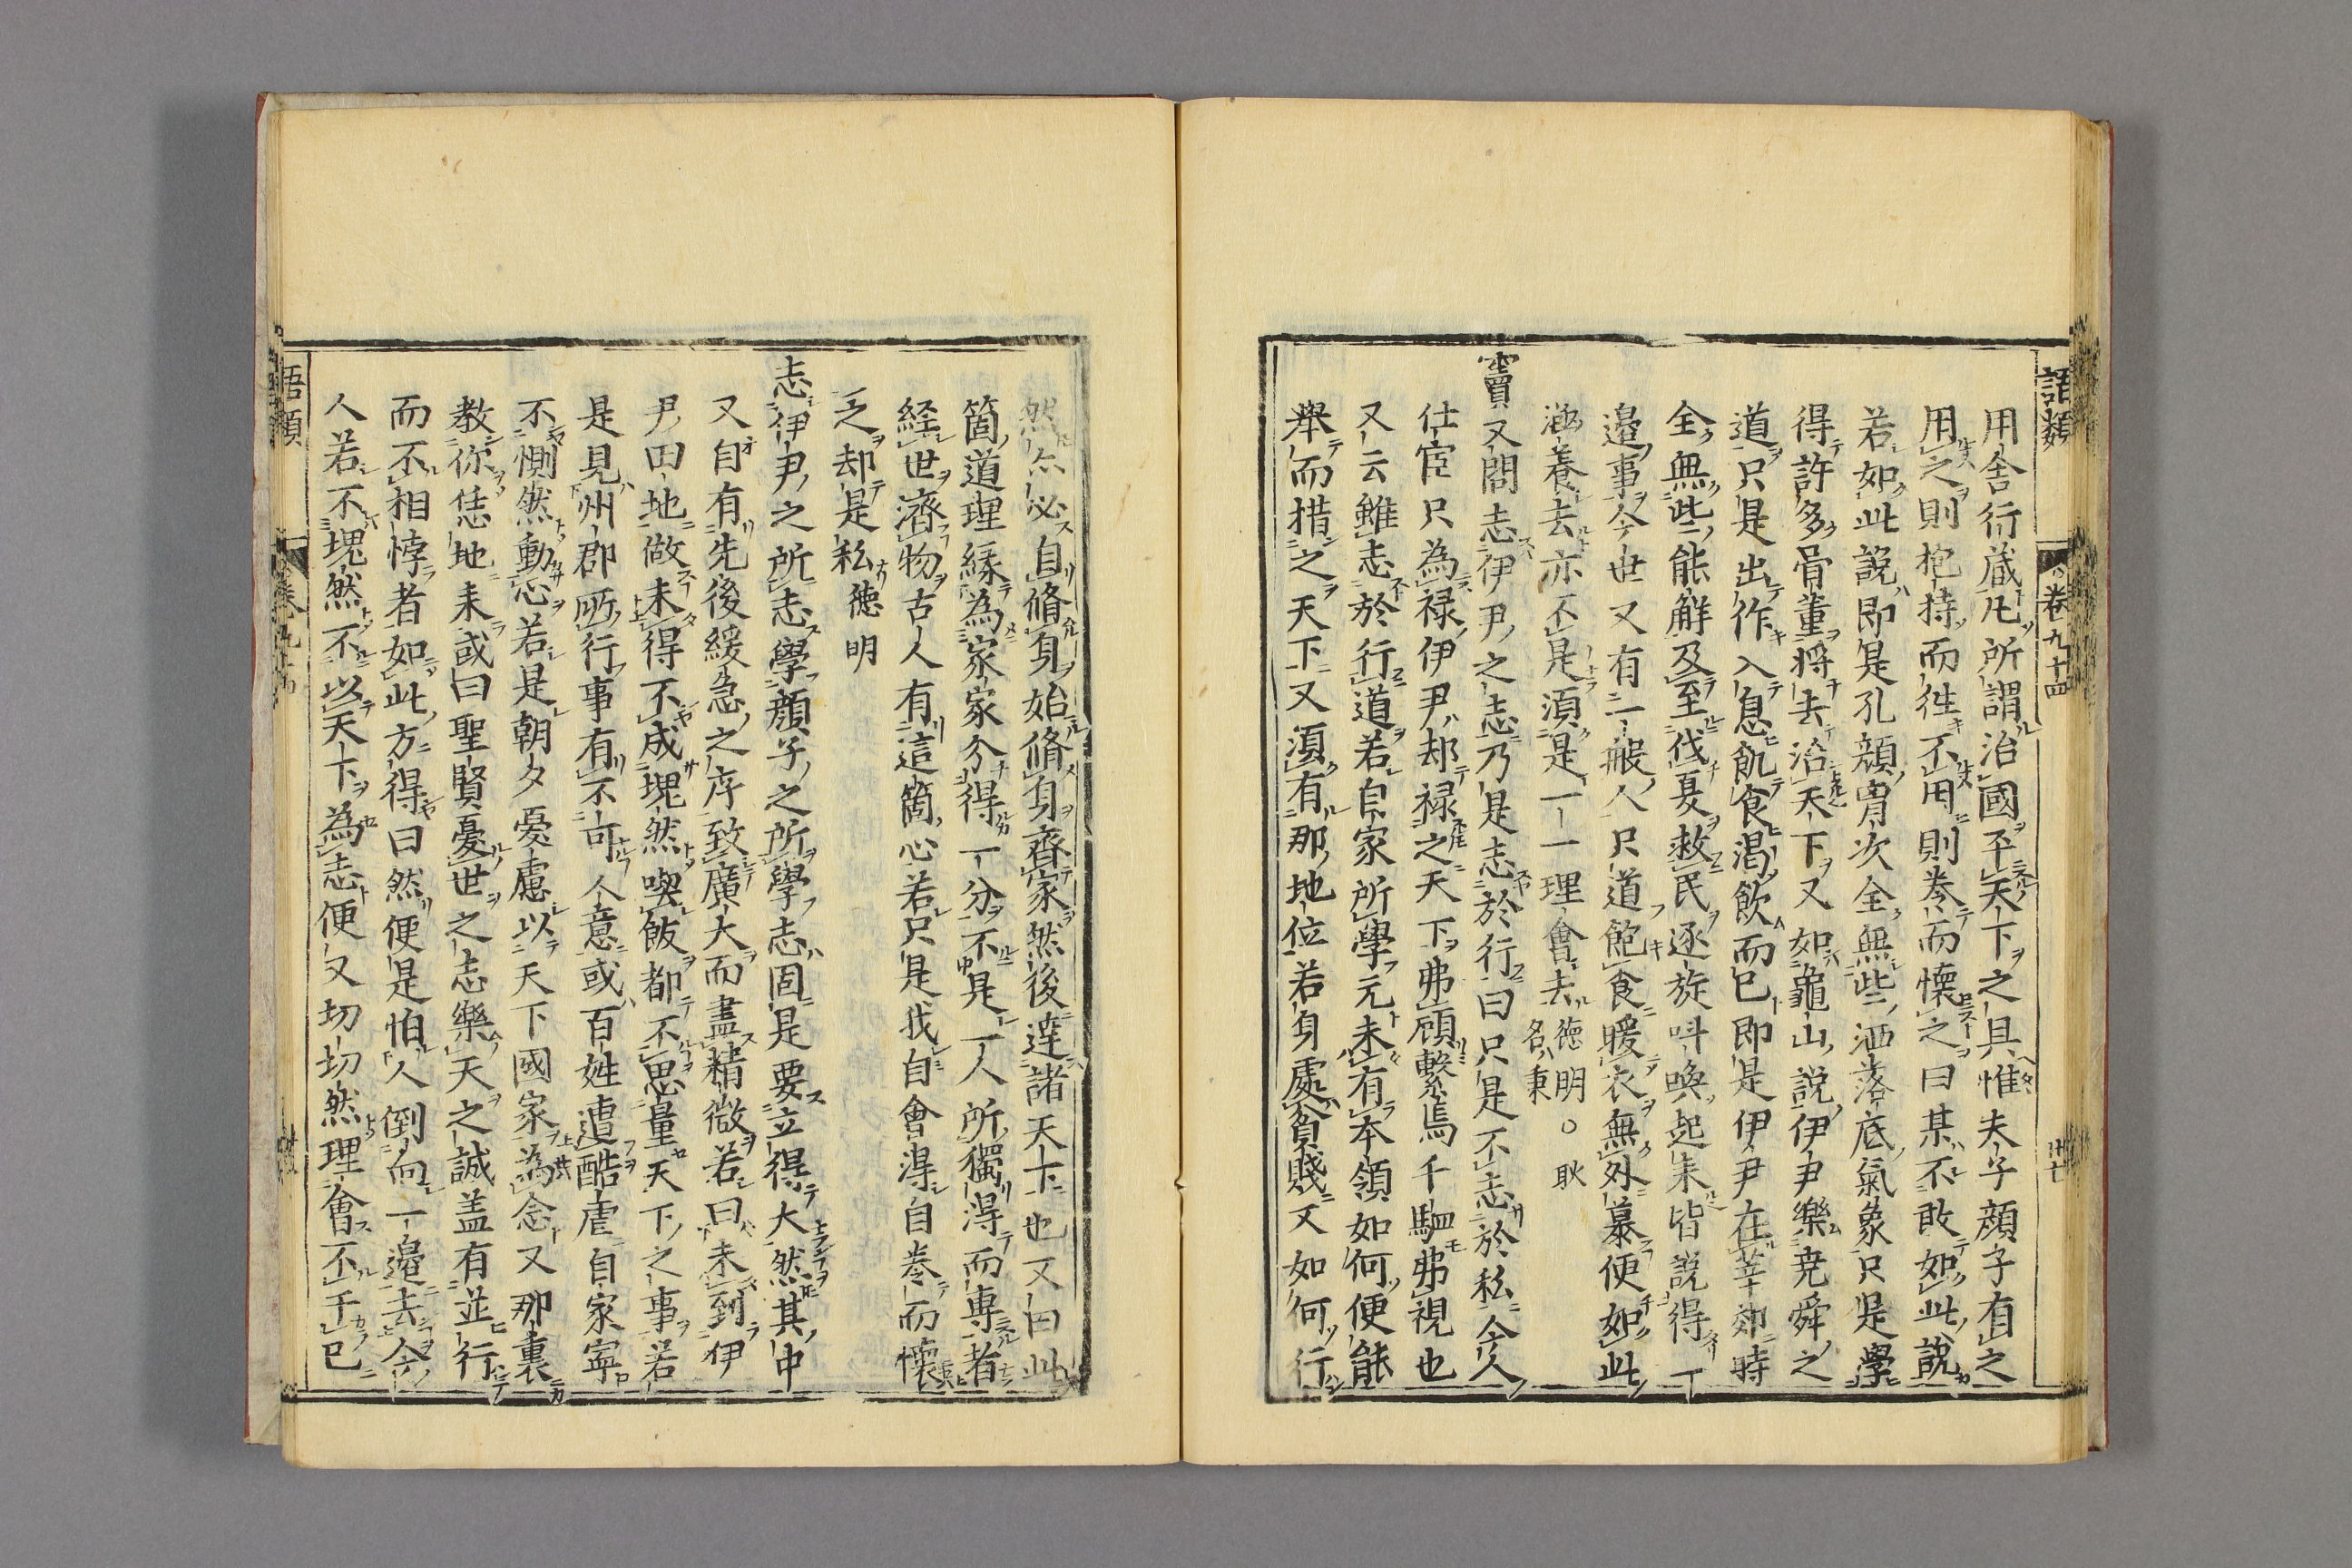 語類
卷九十四
廿七
用舎行蔵凡所謂治國平天下之具惟夫子顔子有之
用之則抱持而徃不用則卷而懐之曰某不敢如此說
若如此說即是孔顔胷次全無些洒落底氣象只是學
得許多骨董將去治天下又如龜山說伊尹樂尭舜之
道只是出作入息飢食渇飲而已即是伊尹在莘郊時
全無些能解及至伐夏救民逐旋呌喚起来皆說得一
邉事今世又有一般人只道飽食暖衣無外慕便如此
涵養去亦不是須是一一理會去徳明○耿
名秉
竇又問志伊尹之志乃是志於行曰只是不志於私今人
仕宦只為禄伊尹却禄之天下弗顧繫馬千駟弗視也
又云雖志於行道若自家所學元未有本領如何便能
舉而措之天下又須有那地位若身處貧賤又如何行
然亦必自脩身始脩身齊家然後達諸天下也又曰此
箇道理縁為家家分得一分不是一人所獨得而專者
経世濟物古人有這箇心若只是我自會得自卷而懐
之却是私徳明
志伊尹之所志學顔子之所學志固是要立得大然其中
又自有先後緩急之序致廣大而盡精微若曰未到伊
尹田地做未得不成塊然喫飯都不思量天下之事若
是見州郡所行事有不可人意或百姓遭酷虐自家寧
不惻然動心若是朝夕憂慮以天下國家為念又那裏
教你恁地来或曰聖賢憂世之志樂天之誠盖有並行
而不相悖者如此方得曰然便是怕人倒向一邉去今
人若不塊然不以天下為志便又切切然理會不干己
語類